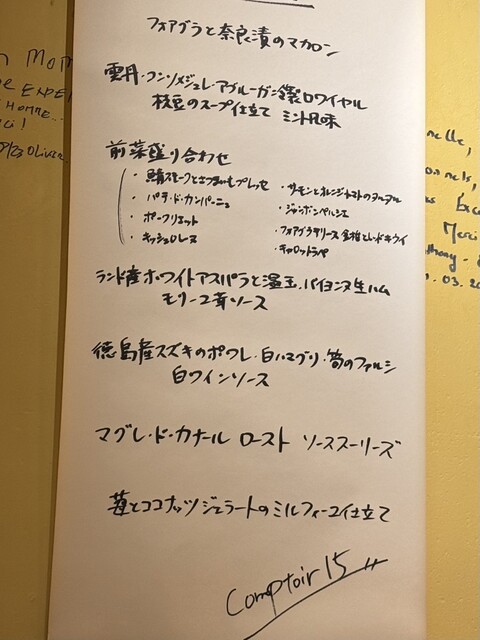 フォアグラと奈良漬のマカロン
雲丹・コンソメジュレ・アブルーガ 冷製ロワイヤル
枝豆のスープ仕立て ミント風味
前菜盛り合わせ
・鯖スモークとさつまいもプレッセ
・パテ・ド・カンパーニュ
・ポークリエット
・キッシュロレーヌ
・サーモンとオレンジトマトのタルタル
・ジャンボンペルシエ
・フォアグラテリーヌ 金柑とレッドキウイ
・キャロットラペ
ランド産ホワイトアスパラと温玉、バイヨンヌ生ハム
モリーユ茸ソース
徳島産スズキのポワレ・白ハマグリ・筍のファルシ
白ワインソース
マグレ・ド・カナール ロースト ソーススリーズ
苺とココナッツジェラートのミルフィーユ仕立て
Comptoir 15
OR EXPE
HOMME...
ci!
Oliver
nelle,
onnels,
Exce
Merci
thony
03.20